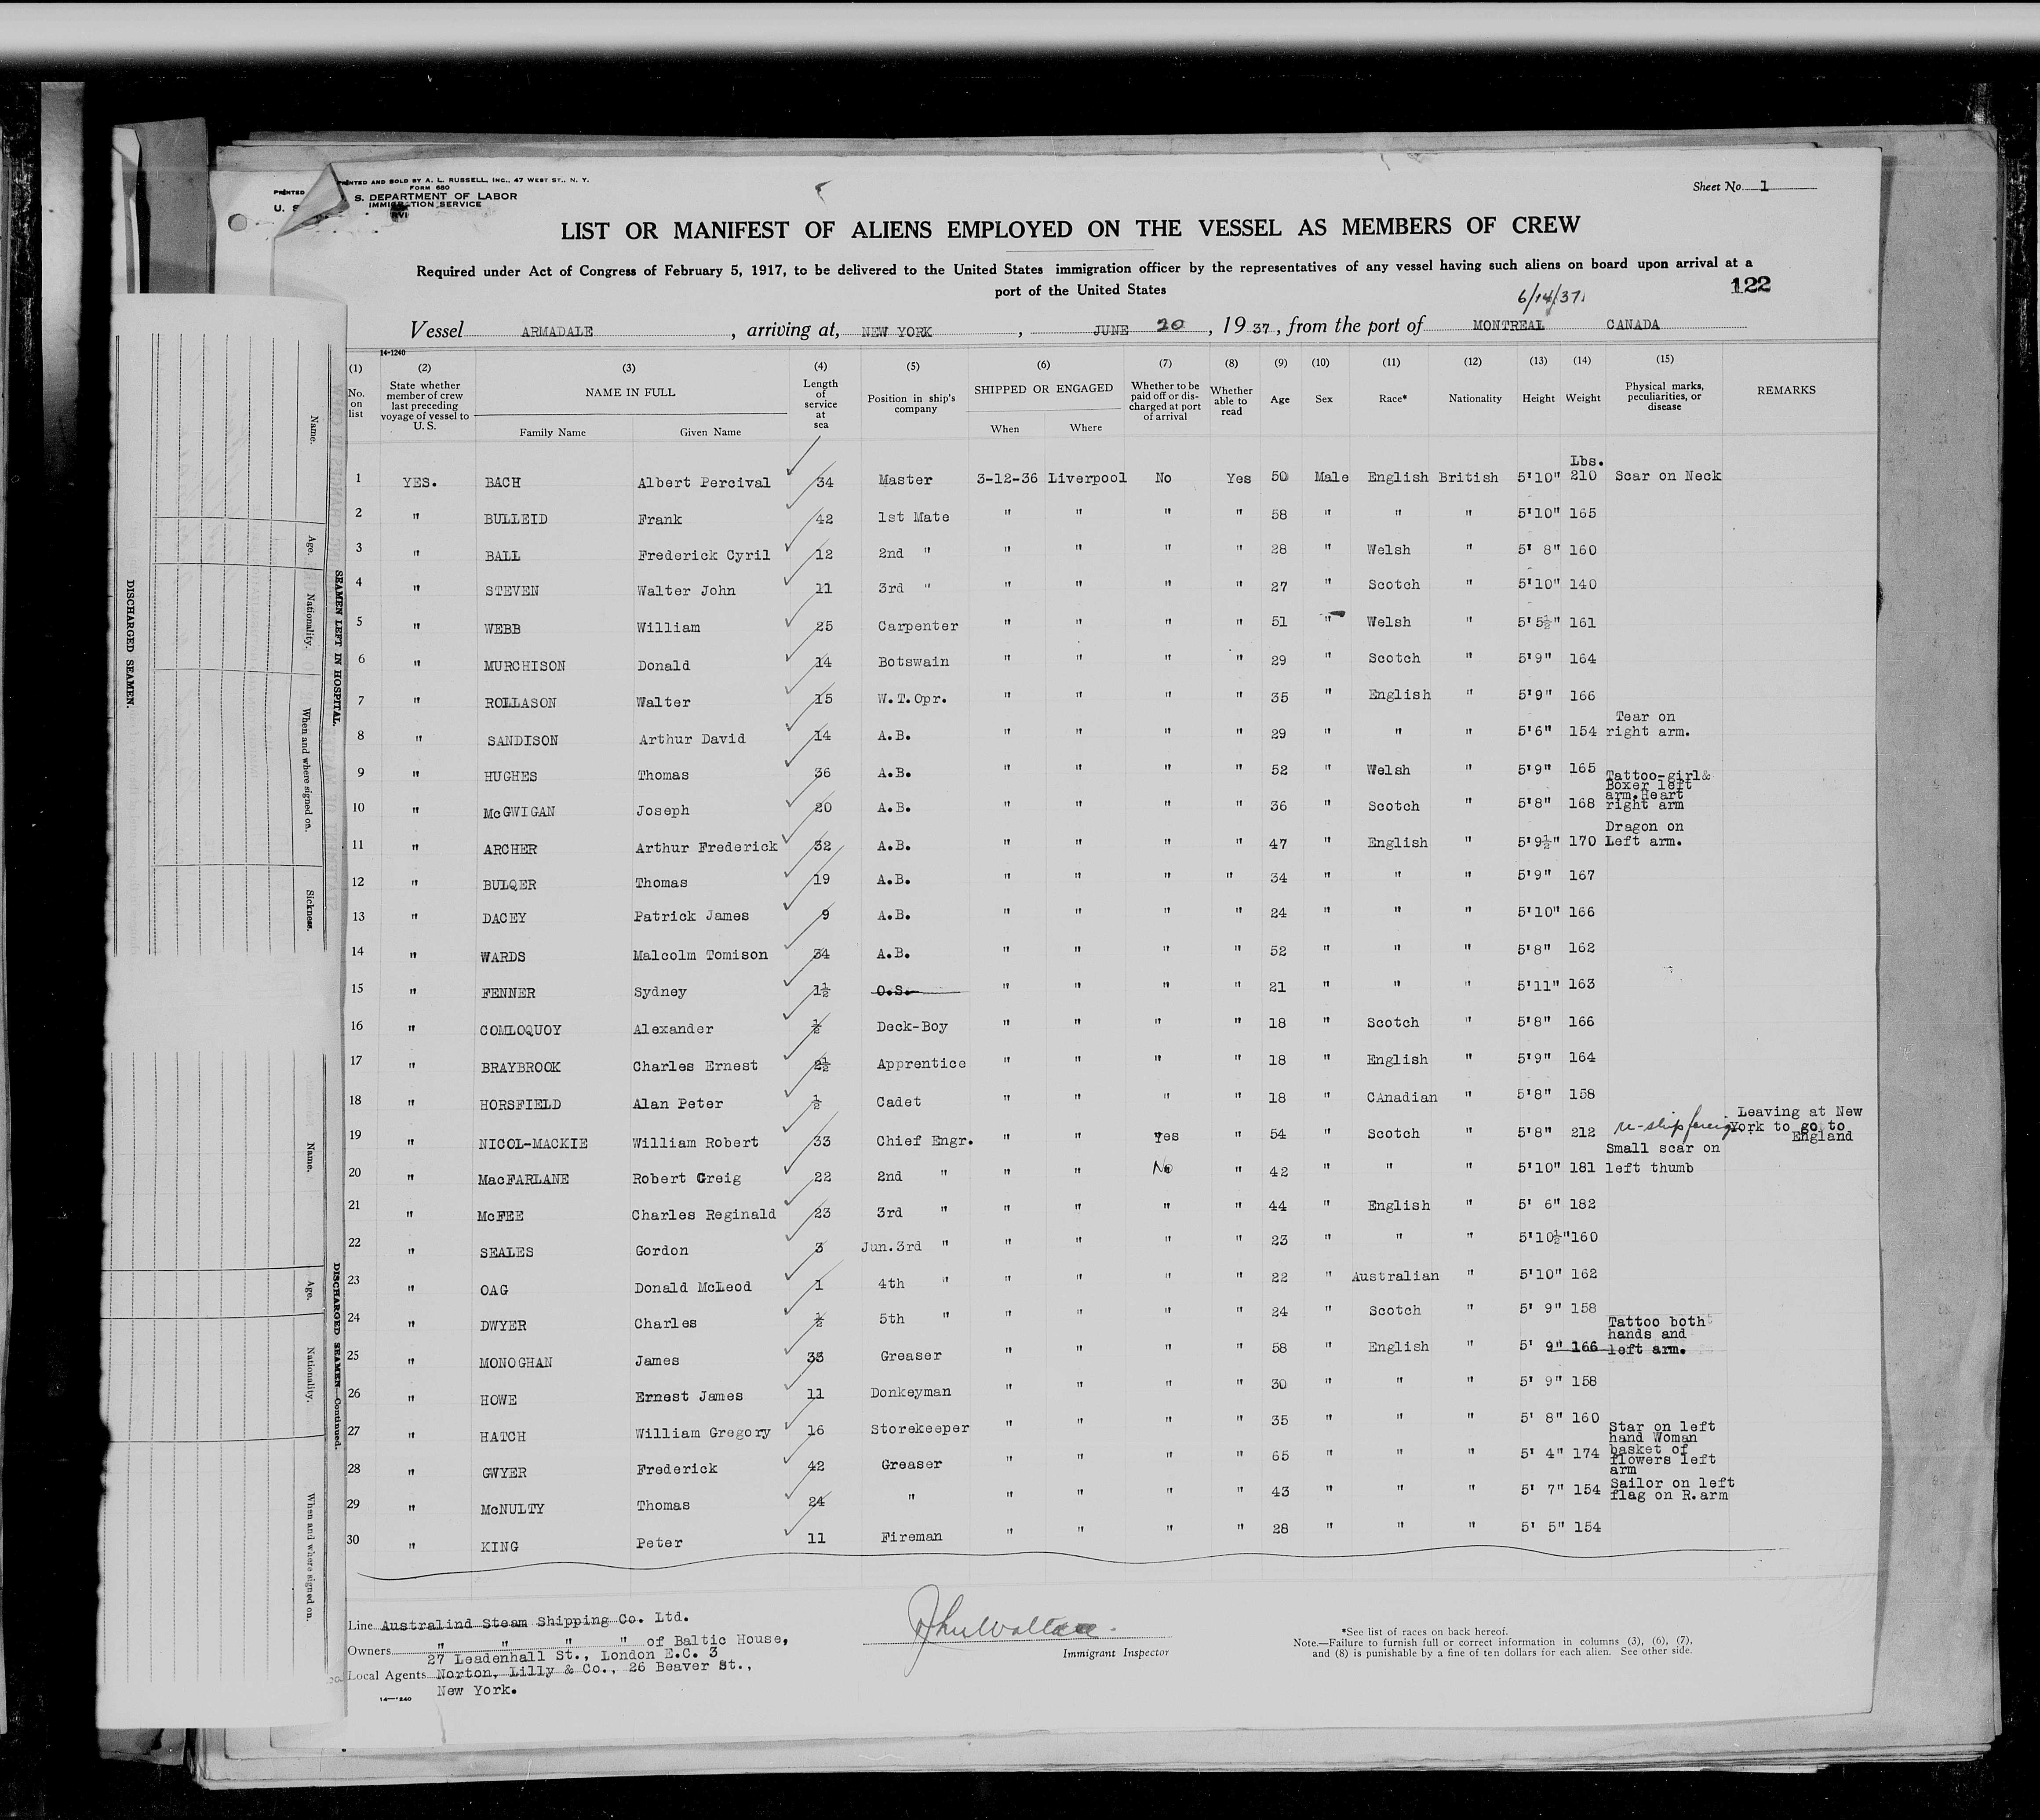 PRINTED AND SOLD BY A. L. RUSSELL, INC., 47 WEST ST., N. Y.
FORM 680
PRINTED
U. S
S. DEPARTMENT OF LABOR
IMMIGRATION SERVICE
Sheet No. 1
LIST OR MANIFEST OF ALIENS EMPLOYED ON THE VESSEL AS MEMBERS OF CREW
Required under Act of Congress of February 5, 1917, to be delivered to the United States immigration officer by the representatives of any vessel having such aliens on board upon arrival at a
port of the United States
122
6/14/37
Vessel ARMADALE, arriving at, NEW YORK, JUNE 20, 19 37, from the port of MONTREAL CANADA
14-1240
(1) (2) (3) (4) (5) (6) (7) (8) (9) (10) (11) (12) (13) (14) (15)
No. on list State whether member of crew last preceding voyage of vessel to U. S. NAME IN FULL Length of service at sea Position in ship's company SHIPPED OR ENGAGED Whether to be paid off or discharged at port of arrival Whether able to read Age Sex Race* Nationality Height Weight Physical marks, peculiarities, or disease REMARKS
Family Name Given Name When Where
Lbs.
1 YES. BACH Albert Percival 34 Master 3-12-36 Liverpool No Yes 50 Male English British 5'10" 210 Scar on Neck
2 " BULLEID Frank 42 1st Mate " " " " 58 " " " 5'10" 165
3 " BALL Frederick Cyril 12 2nd " " " " " 28 " Welsh " 5' 8" 160
4 " STEVEN Walter John 11 3rd " " " " " 27 " Scotch " 5'10" 140
5 " WEBB William 25 Carpenter " " " " 51 " Welsh " 5'5½" 161
6 " MURCHISON Donald 14 Botswain " " " " 29 " Scotch " 5'9" 164
7 " ROLLASON Walter 15 W.T.Opr. " " " " 35 " English " 5'9" 166
8 " SANDISON Arthur David 14 A.B. " " " " 29 " " " 5'6" 154 Tear on right arm.
9 " HUGHES Thomas 36 A.B. " " " " 52 " Welsh " 5'9" 165
10 " McGWIGAN Joseph 20 A.B. " " " " 36 " Scotch " 5'8" 168 Tattoo-girl& Boxer left arm.Heart right arm
11 " ARCHER Arthur Frederick 32 A.B. " " " " 47 " English " 5'9½" 170 Dragon on Left arm.
12 " BULQER Thomas 19 A.B. " " " " 34 " " " 5'9" 167
13 " DACEY Patrick James 9 A.B. " " " " 24 " " " 5'10" 166
14 " WARDS Malcolm Tomison 34 A.B. " " " " 52 " " " 5'8" 162
15 " FENNER Sydney 1½ O.S. " " " " 21 " " " 5'11" 163
16 " COMLOQUOY Alexander ½ Deck-Boy " " " " 18 " Scotch " 5'8" 166
17 " BRAYBROOK Charles Ernest 2½ Apprentice " " " " 18 " English " 5'9" 164
18 " HORSFIELD Alan Peter ½ Cadet " " " " 18 " CAnadian " 5'8" 158
19 " NICOL-MACKIE William Robert 33 Chief Engr. " " Yes " 54 " Scotch " 5'8" 212 Leaving at New York to go to England
20 " MacFARLANE Robert Greig 22 2nd " " " No " 42 " " " 5'10" 181 Small scar on left thumb
21 " McFEE Charles Reginald 23 3rd " " " " " 44 " English " 5' 6" 182
22 " SEALES Gordon 3 Jun.3rd " " " " " 23 " " " 5'10½" 160
23 " OAG Donald McLeod 1 4th " " " " " 22 " Australian " 5'10" 162
24 " DWYER Charles ½ 5th " " " " " 24 " Scotch " 5' 9" 158
25 " MONOGHAN James 35 Greaser " " " " 58 " English " 5' 9" 166 Tattoo both hands and left arm.
26 " HOWE Ernest James 11 Donkeyman " " " " 30 " " " 5' 9" 158
27 " HATCH William Gregory 16 Storekeeper " " " " 35 " " " 5' 8" 160
28 " GWYER Frederick 42 Greaser " " " " 65 " " " 5' 4" 174 Star on left hand Woman basket of flowers left arm
29 " McNULTY Thomas 24 " " " " " 43 " " " 5' 7" 154 Sailor on left flag on R.arm
30 " KING Peter 11 Fireman " " " " 28 " " " 5' 5" 154
Line Australind Steam Shipping Co. Ltd.
Owners " " " " of Baltic House,
27 Leadenhall St., London E.C. 3
Local Agents Norton, Lilly & Co., 26 Beaver St.,
New York.
14-1240
Immigrant Inspector
*See list of races on back hereof.
Note.—Failure to furnish full or correct information in columns (3), (6), (7),
and (8) is punishable by a fine of ten dollars for each alien. See other side.
SEAMEN LEFT IN HOSPITAL.
Name. Age. Nationality. When and where signed on. Sickness.
DISCHARGED SEAMEN.
DISCHARGED SEAMEN—Continued.
Name. Age. Nationality. When and where signed on.